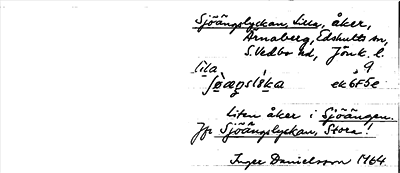 Sjöängslyckan, Lilla, åker,
Arnaberg, Edshults sn,
S. Vedbo hd, Jönk. l.
lila 9
ek 6F5e
Liten åker i Sjöängen.
Jfr Sjöängslyckan, Stora!
Inger Danielsson 1964